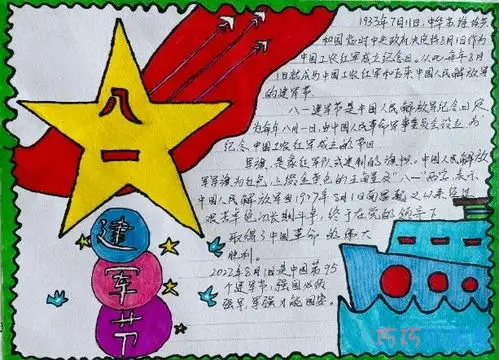 八一
建军节
1933年7月11日,中华苏维埃
和国临时中央政府决定将8月1日作为
中国工农红军成立纪念日。从此每年8月
1日就成为中国工农红军和后来中国人民解放军
的建军节
八一建军节是中国人民解放军纪念日,定
为每年八月一日,由中国人民革命军事委员会设立,为
纪念中国工农红军成立的节日
军旗,是象征军队或建制的旗帜。中国人民解放
军军旗为红色,上缀金黄色的五角星及"八一"两字,表示
中国人民解放军自1927年8月1日南昌起义以来经过
艰苦卓绝的长期斗争,终于在党的领导下
取得了中国革命的伟大
胜利。
2022年8月1日是中国第95
个建军节,强国必须
强军,军强才能国安。
巧巧